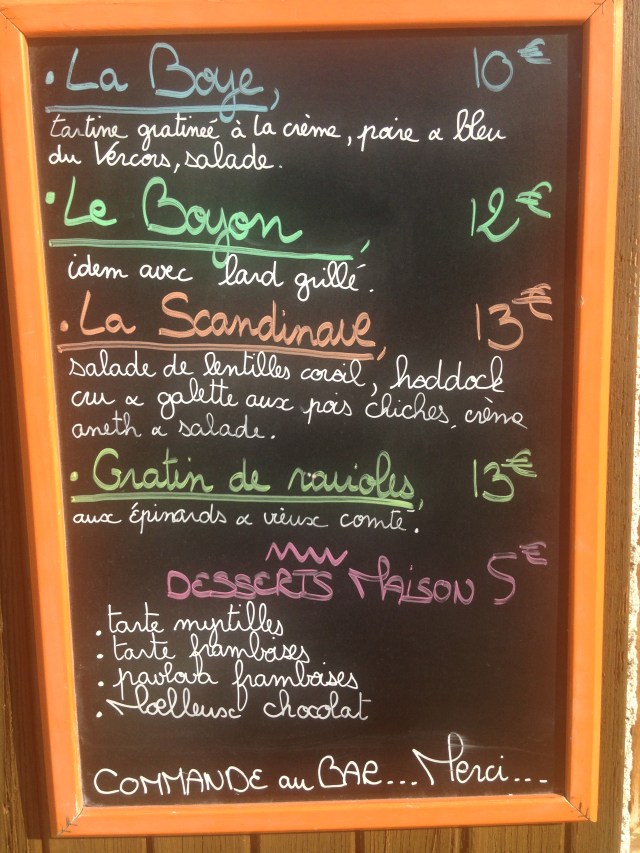 • La Boye, 10 €
tartine gratineé à la crème, poire & bleu
du Vercors, salade.
• Le Boyon, 12 €
idem avec lard grillé.
• La Scandinave, 13 €
salade de lentilles corail, haddock
cru & galette aux pois chiches, crème
aneth & salade.
• Gratin de ravioles, 13 €
aux épinards & vieux comté.
DESSERTS MAISON 5 €
• tarte myrtilles
• tarte framboises
• pavlova framboises
• Moelleux chocolat
COMMANDE au BAR... Merci...